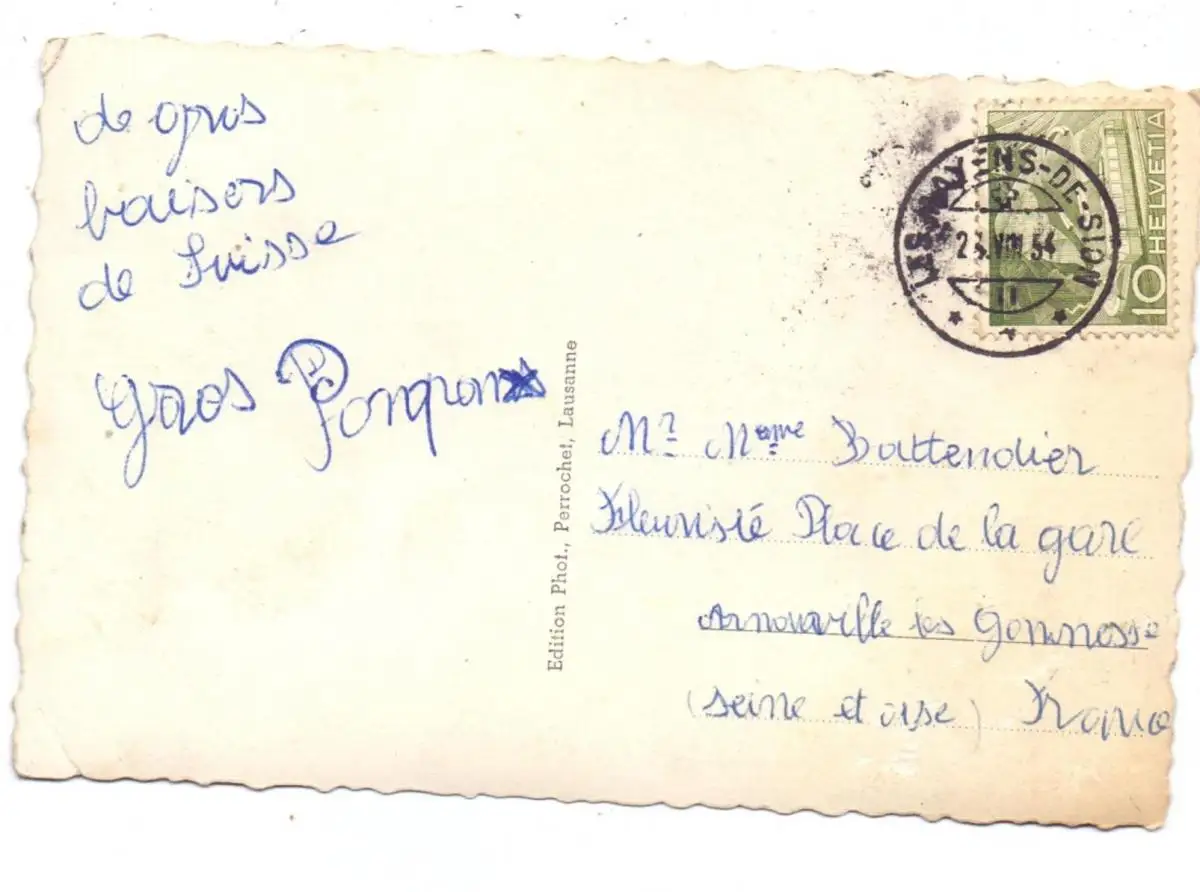 de gros
baisers
de Suisse
Gros Pompom
Edition Phot., Perrochet, Lausanne
LES MAYENS-DE-SION
VIII 54
11
10 HELVETIA
Mr Mme Battendier
Fleuriste Place de la gare
Arnouville les Gonnesse
(seine et oise) France